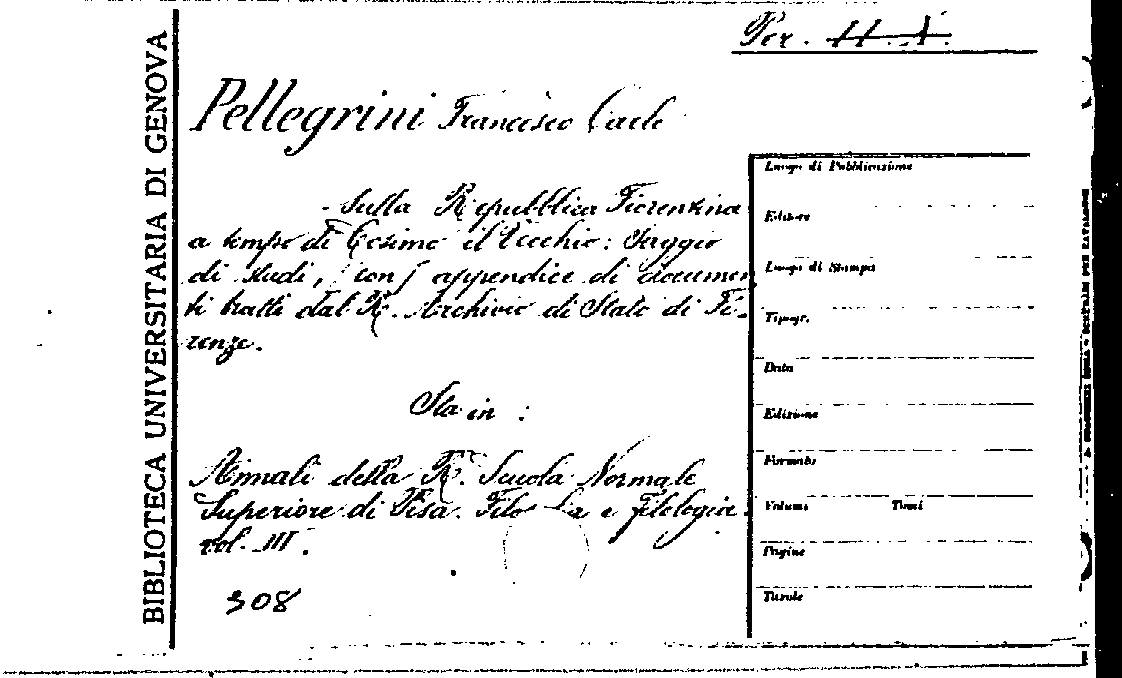 Per. H.X.
BIBLIOTECA UNIVERSITARIA DI GENOVA
Pellegrini Francesco Carlo
- Sulla Repubblica Fiorentina
a tempo di Cosimo il Vecchio: Saggio
di studi, (con) appendice di documen
ti tratti dal R. Archivio di Stato di Fi-
renze.
Sta in :
Annali della R. Scuola Normale
Superiore di Pisa. Filo e filologia.
vol. III.
308
Luogo di Pubblicazione
Editore
Luogo di Stampa
Tipogr.
Data
Edizione
Formato
Volumi Tomi
Pagine
Tavole